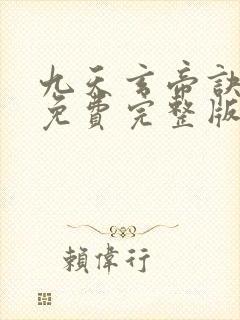 九天玄帝訣
免費完整版
賴偉行